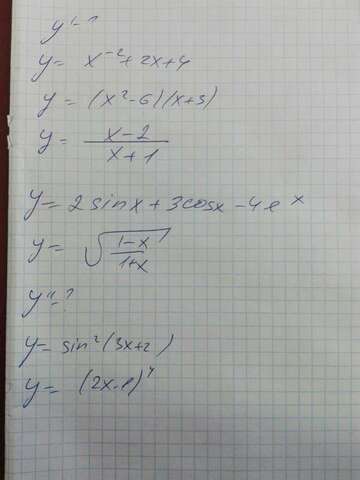 y'=?
y= x⁻²+2x+4
y= (x²-6)(x+3)
y= (x-2)/(x+1)
y= 2sinx+3cosx-4eˣ
y= √((1-x)/(1+x))
y''=?
y= sin²(3x+2)
y= (2x-1)⁴